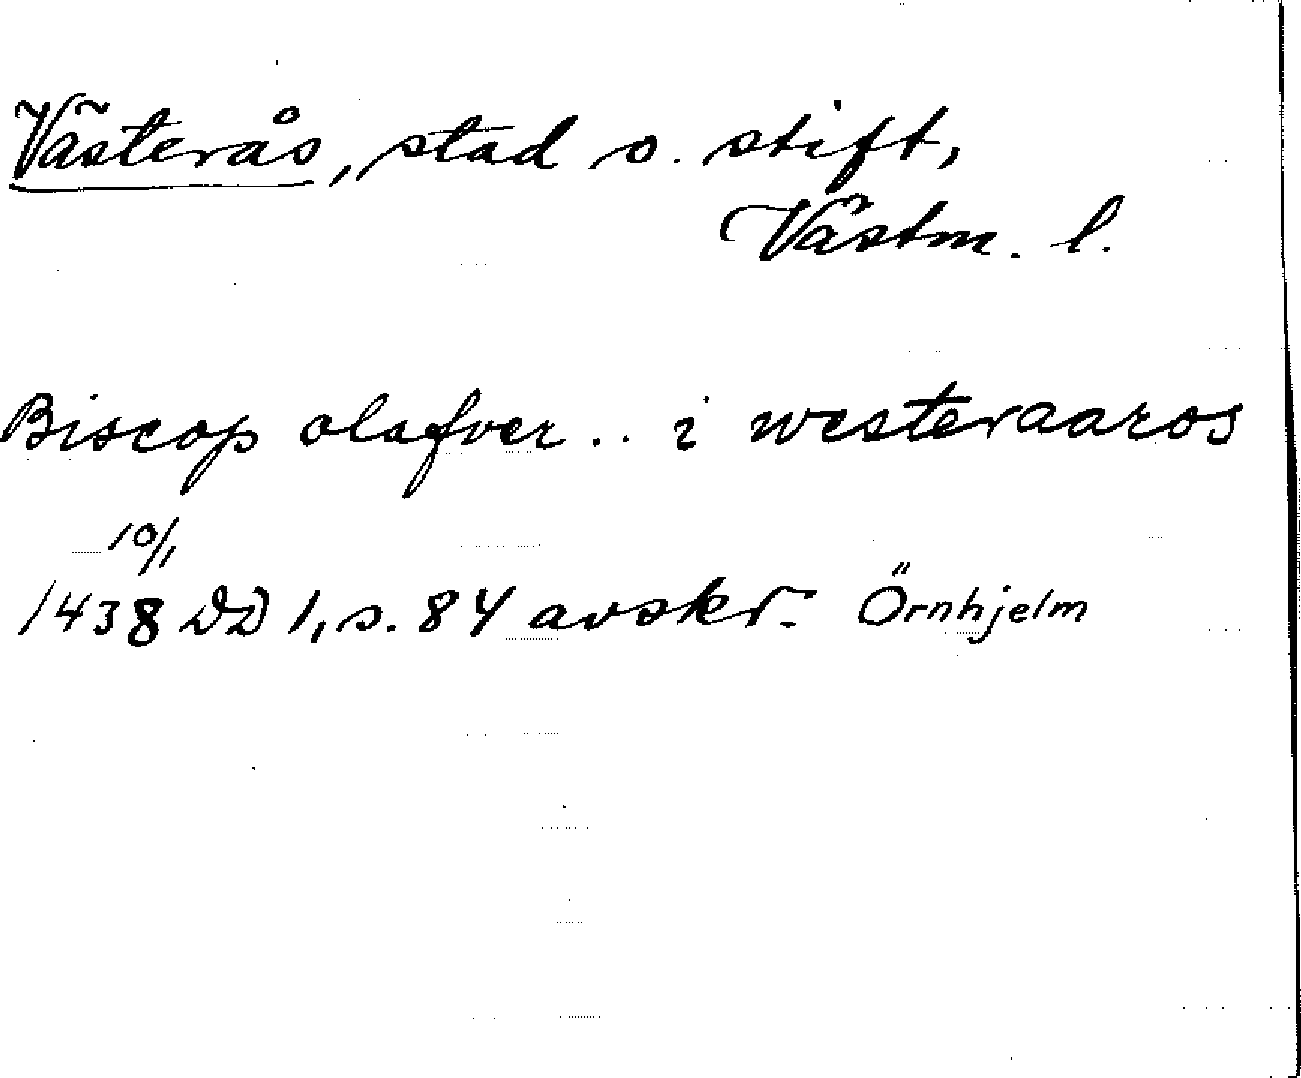 Västerås, stad o. stift,
Västm. l.
Biscop olafver .. i westeraaros
10/1
1438 DD 1, s. 84 avskr. Örnhjelm